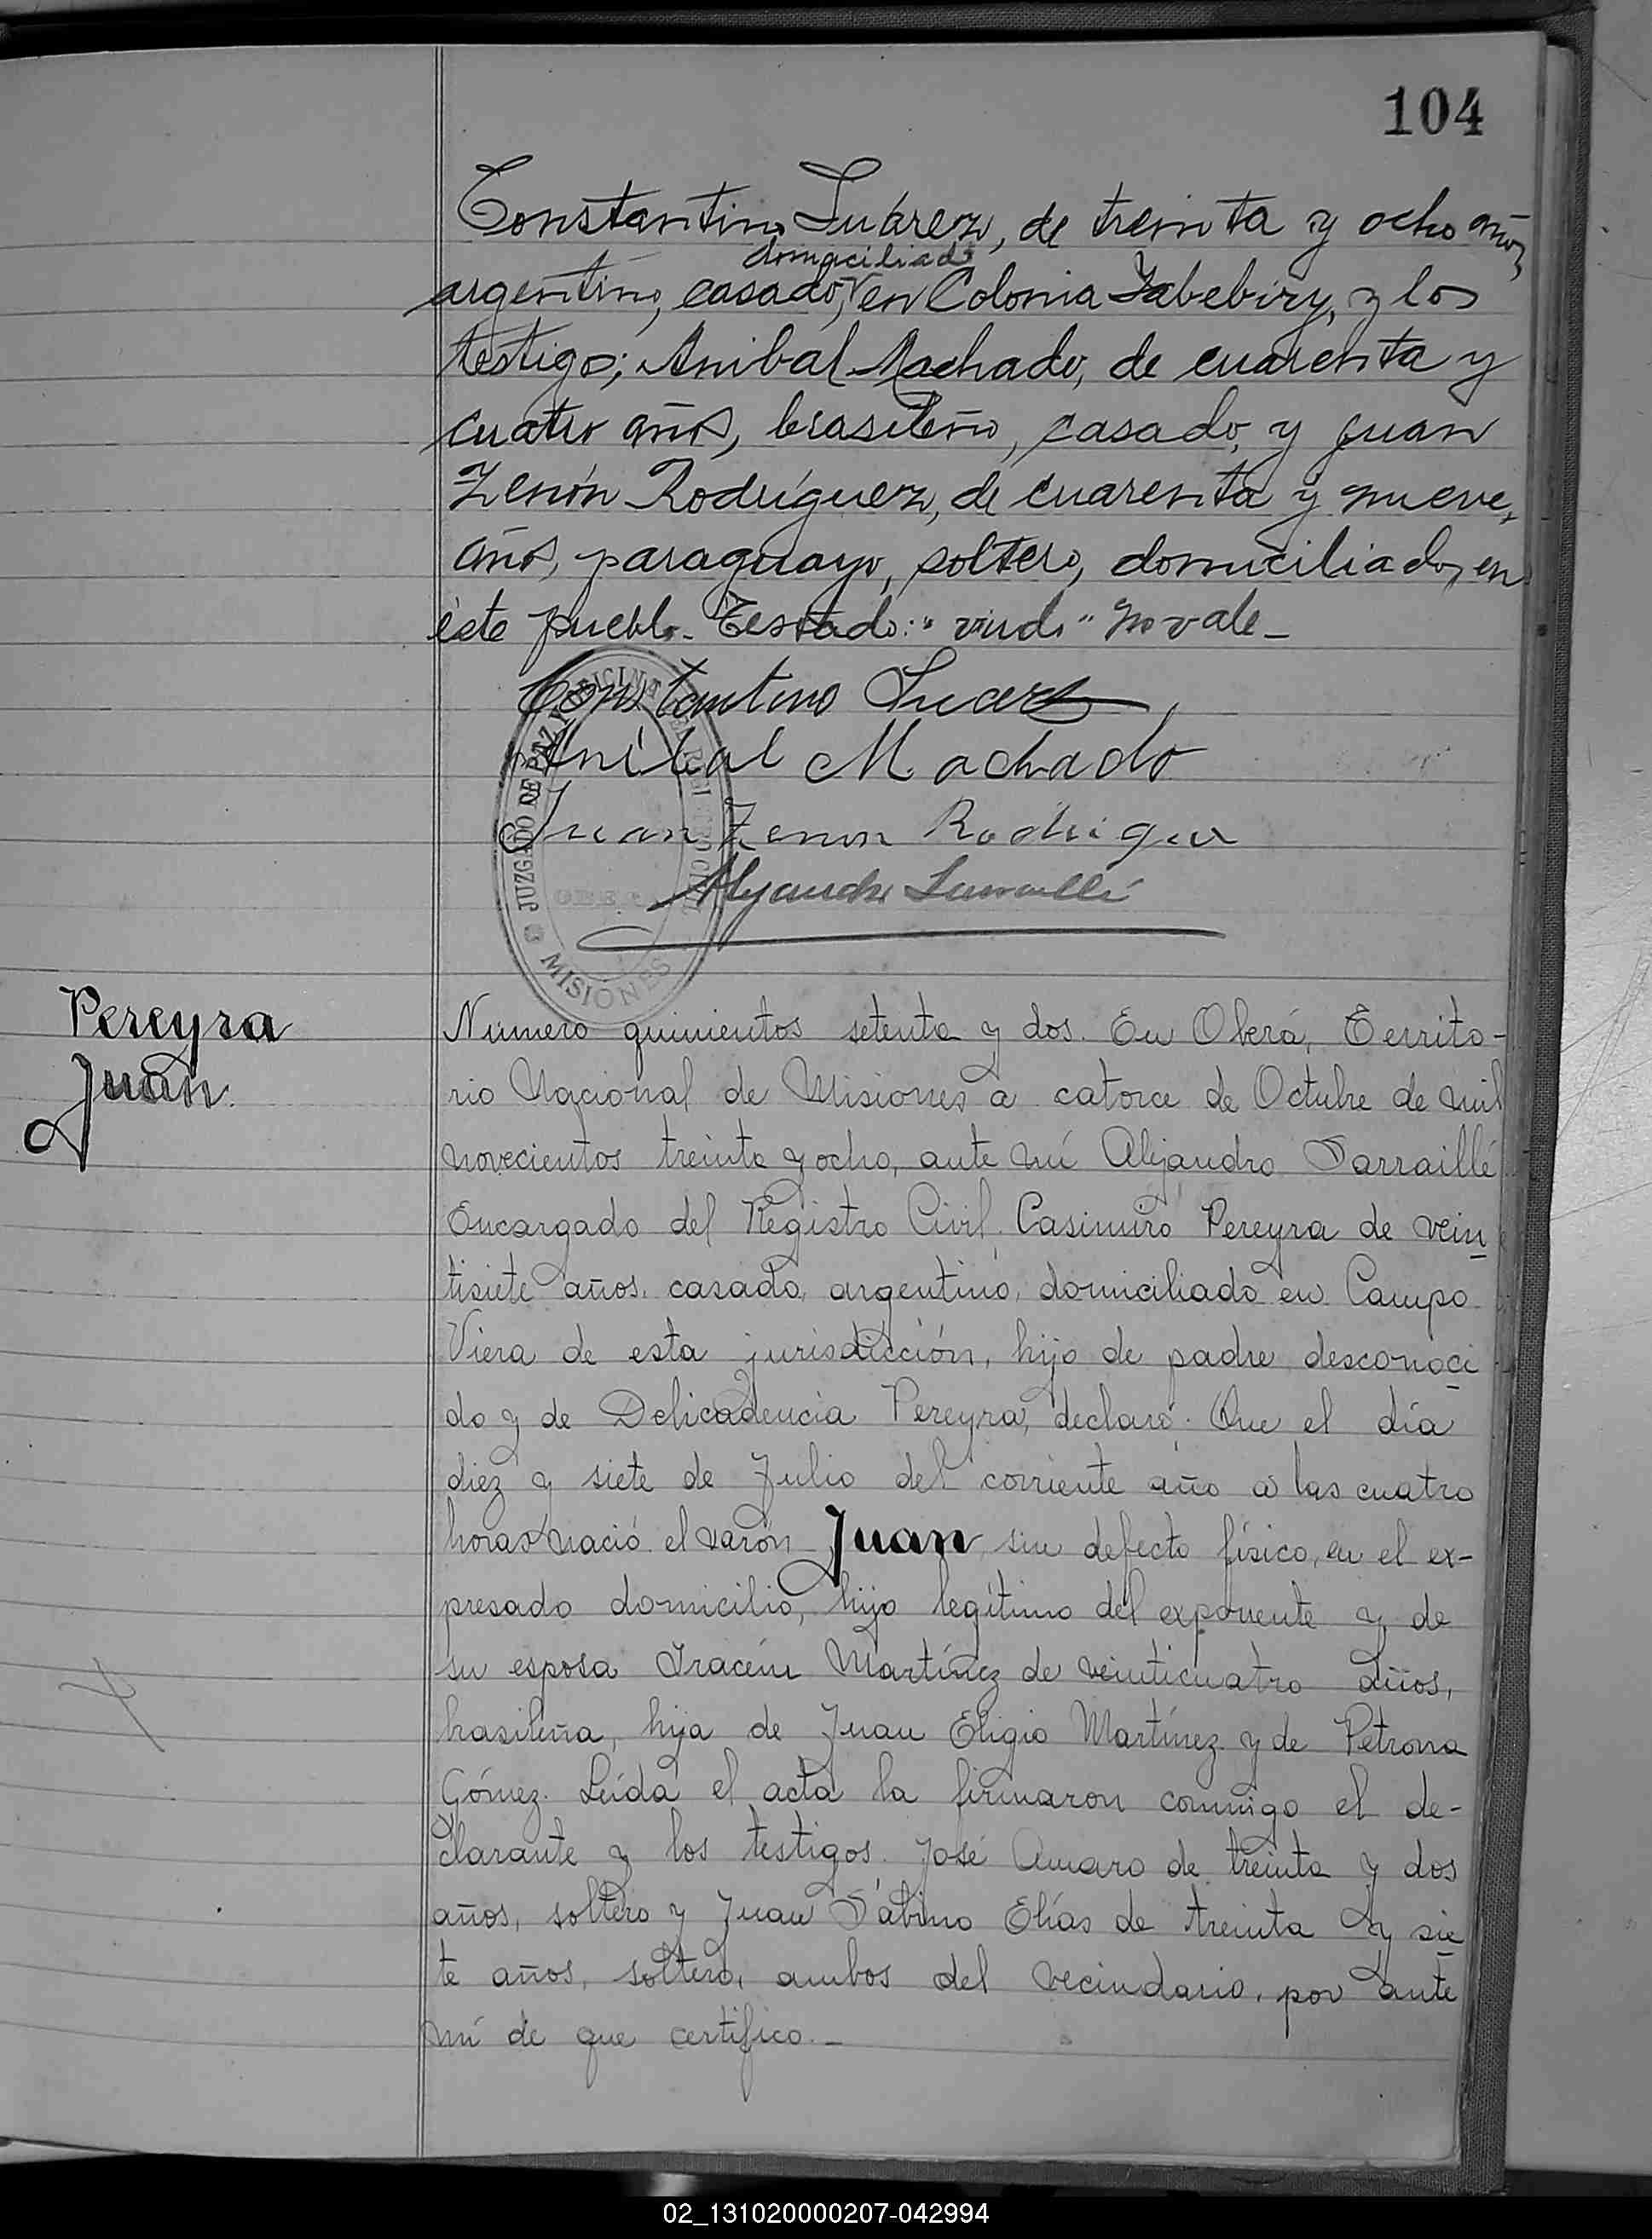 104
Constantino Suárez, de treinta y ocho años,
domiciliado
argentino, casado, en Colonia Yabebiry, y los
testigo; Anibal Machado, de cuarenta y
cuatro años, brasileño, casado, y Juan
Zenón Rodríguez, de cuarenta y nueve,
años, paraguayo, soltero, domiciliados en
éste pueblo. Testado: "viudo" no vale_
Constantino Suarez
Anibal Machado
Juan Zenon Rodrigue
Alejandro Sarraillé
JUZGADO DE PAZ
MISIONES
Pereyra
Juan.
Número quinientos setenta y dos. En Oberá, Territo-
rio Nacional de Misiones a catorce de Octubre de mil
novecientos treinta y ocho, ante mí Alejandro Sarraillé
Encargado del Registro Civil. Casimiro Pereyra de vein
tisiete años, casado, argentino, domiciliado en Campo
Viera de esta jurisdicción, hijo de padre desconoci
do y de Delicadencia Pereyra, declaró: Que el día
diez y siete de Julio del corriente año a las cuatro
horas nació el varón Juan sin defecto físico, en el ex-
presado domicilio, hijo legítimo del exponente y de
su esposa Iracém Martínez de veinticuatro años,
brasileña, hija de Juan Eligio Martínez y de Petrona
Gómez. Leída el acta la firmaron conmigo el de-
clarante y los testigos. José Amaro de treinta y dos
años, soltero y Juan Sabino Elías de treinta y sie
te años, soltero, ambos del vecindario, por ante
mí de que certifico._
02_131020000207-042994